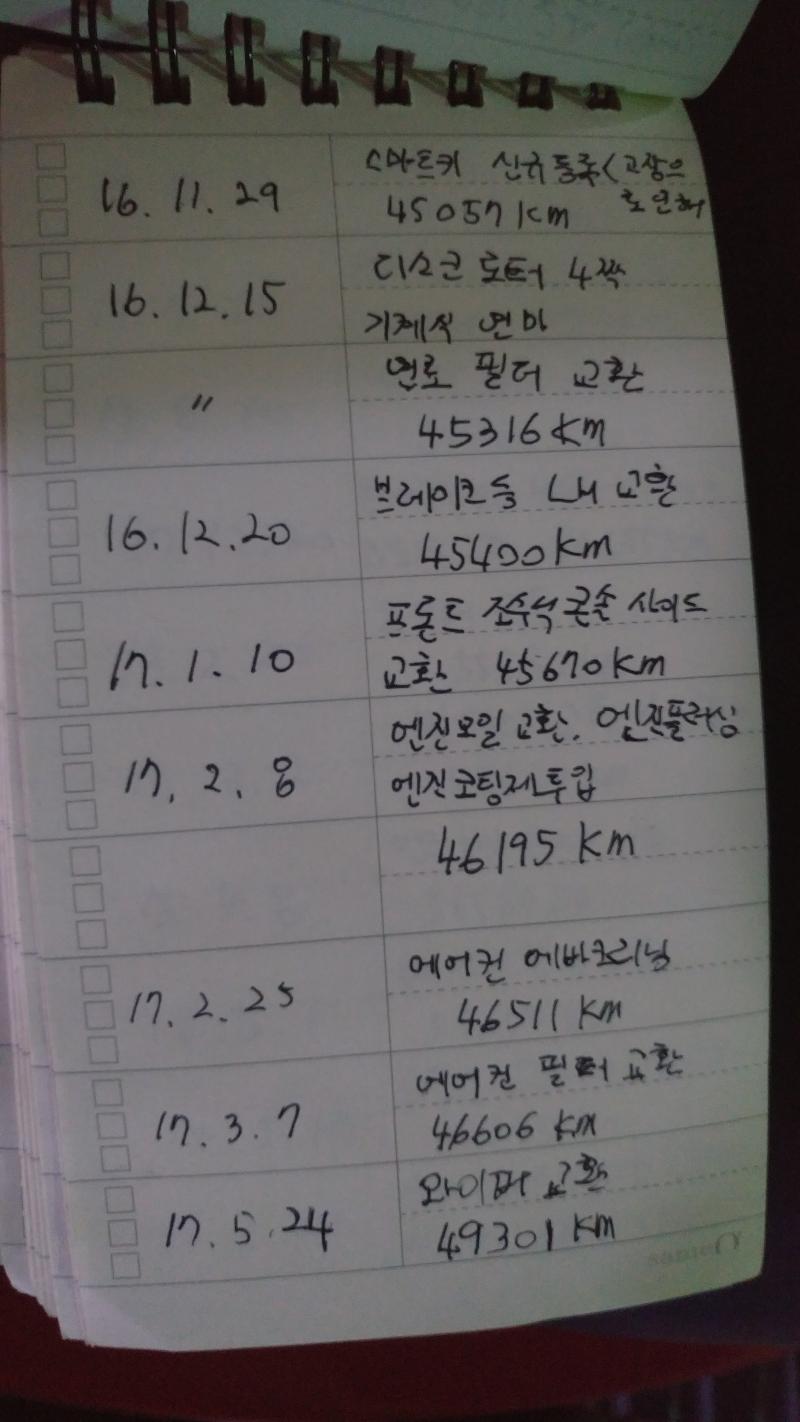 16. 11. 29
스마트키 신규등록(고장으
로 인해
45057km
16. 12. 15
디스크 로터 4짝
기계식 연마
"
연료 필터 교환
45316km
16. 12. 20
브레이크등 LH 교환
45400km
17. 1. 10
프론트 조수석 콘솔 사이드
교환 45670km
17. 2. 8
엔진오일 교환, 엔진플러싱
엔진코팅제투입
46195 km
17. 2. 25
에어컨 에바크리닝
46511 km
17. 3. 7
에어컨 필터 교환
46606 km
17. 5. 24
와이퍼 교환
49301 km